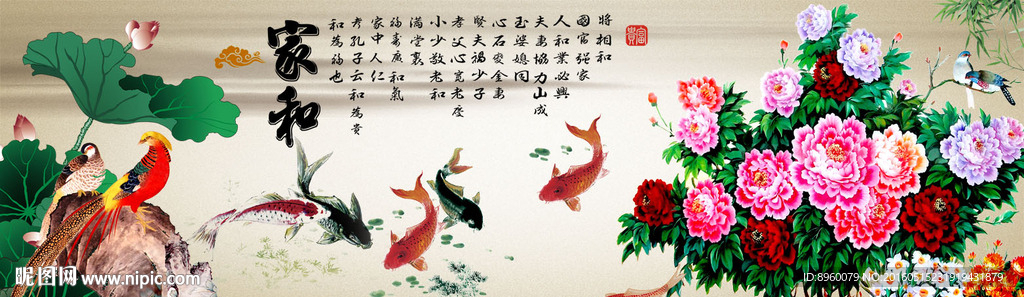 家和
將相和
國富強家
人和業必興
夫妻協力山成
玉婆媳同
心石變金妻
賢夫禍少子
孝父心寬老
小少敬老和
滿堂
福壽康和氣
家中人仁
孝孔子云和為貴
和為福也
富貴
昵图网 www.nipic.com
ID:8960079 NO:20160515231919431879